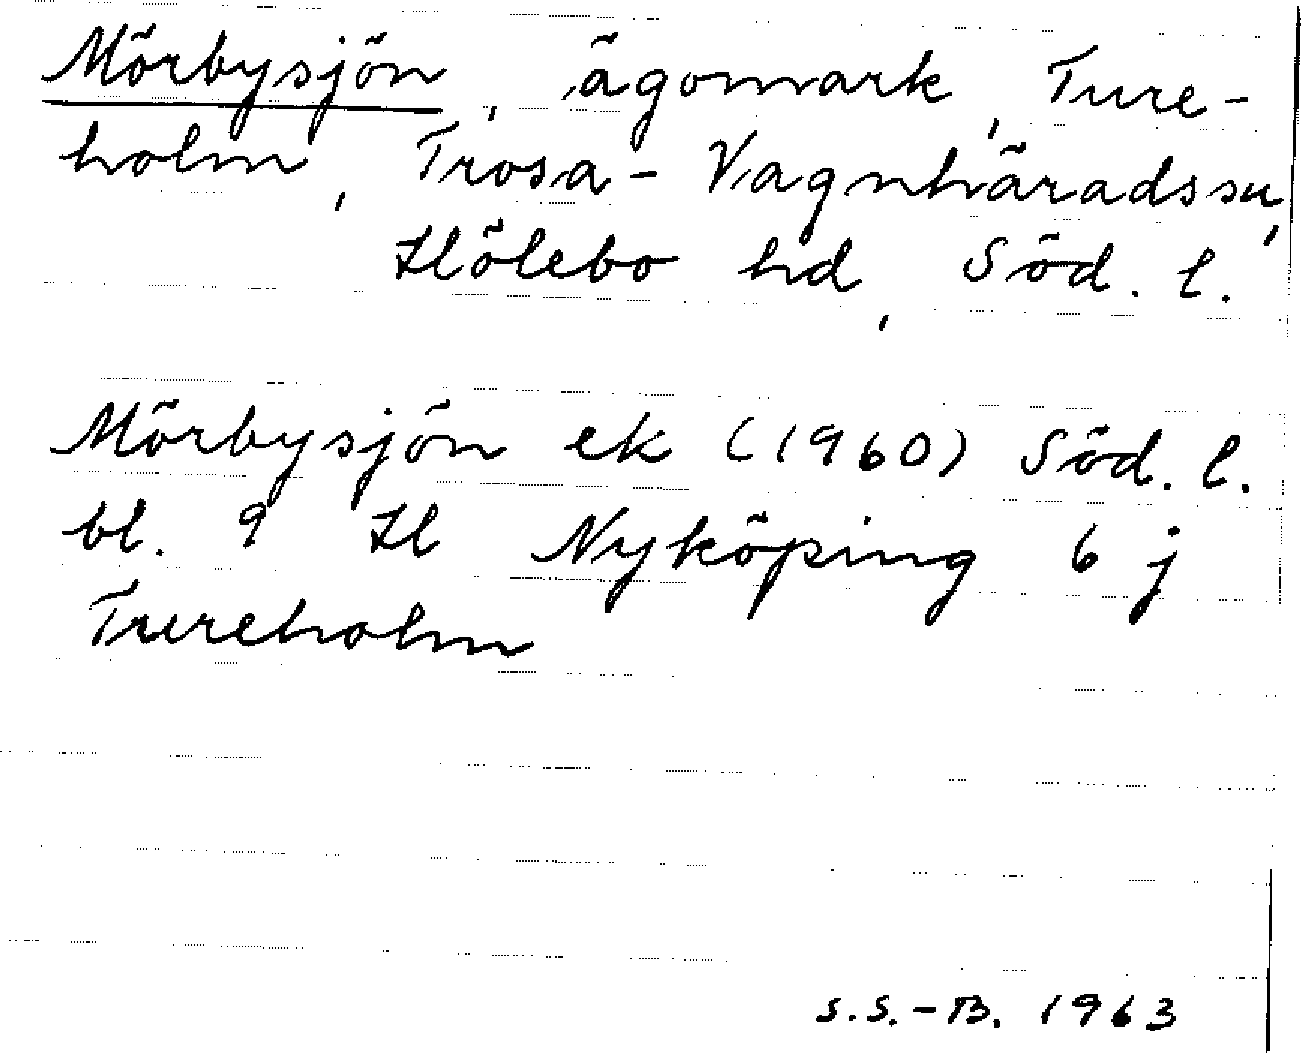 Mörbysjön, ägomark, Ture-
holm, Trosa-Vagnhäradssn,
Hölebo hd, Söd. l.
Mörbysjön ek (1960) Söd. l.
bl. 9 H Nyköping 6 j
Tureholm
S.S.-B. 1963